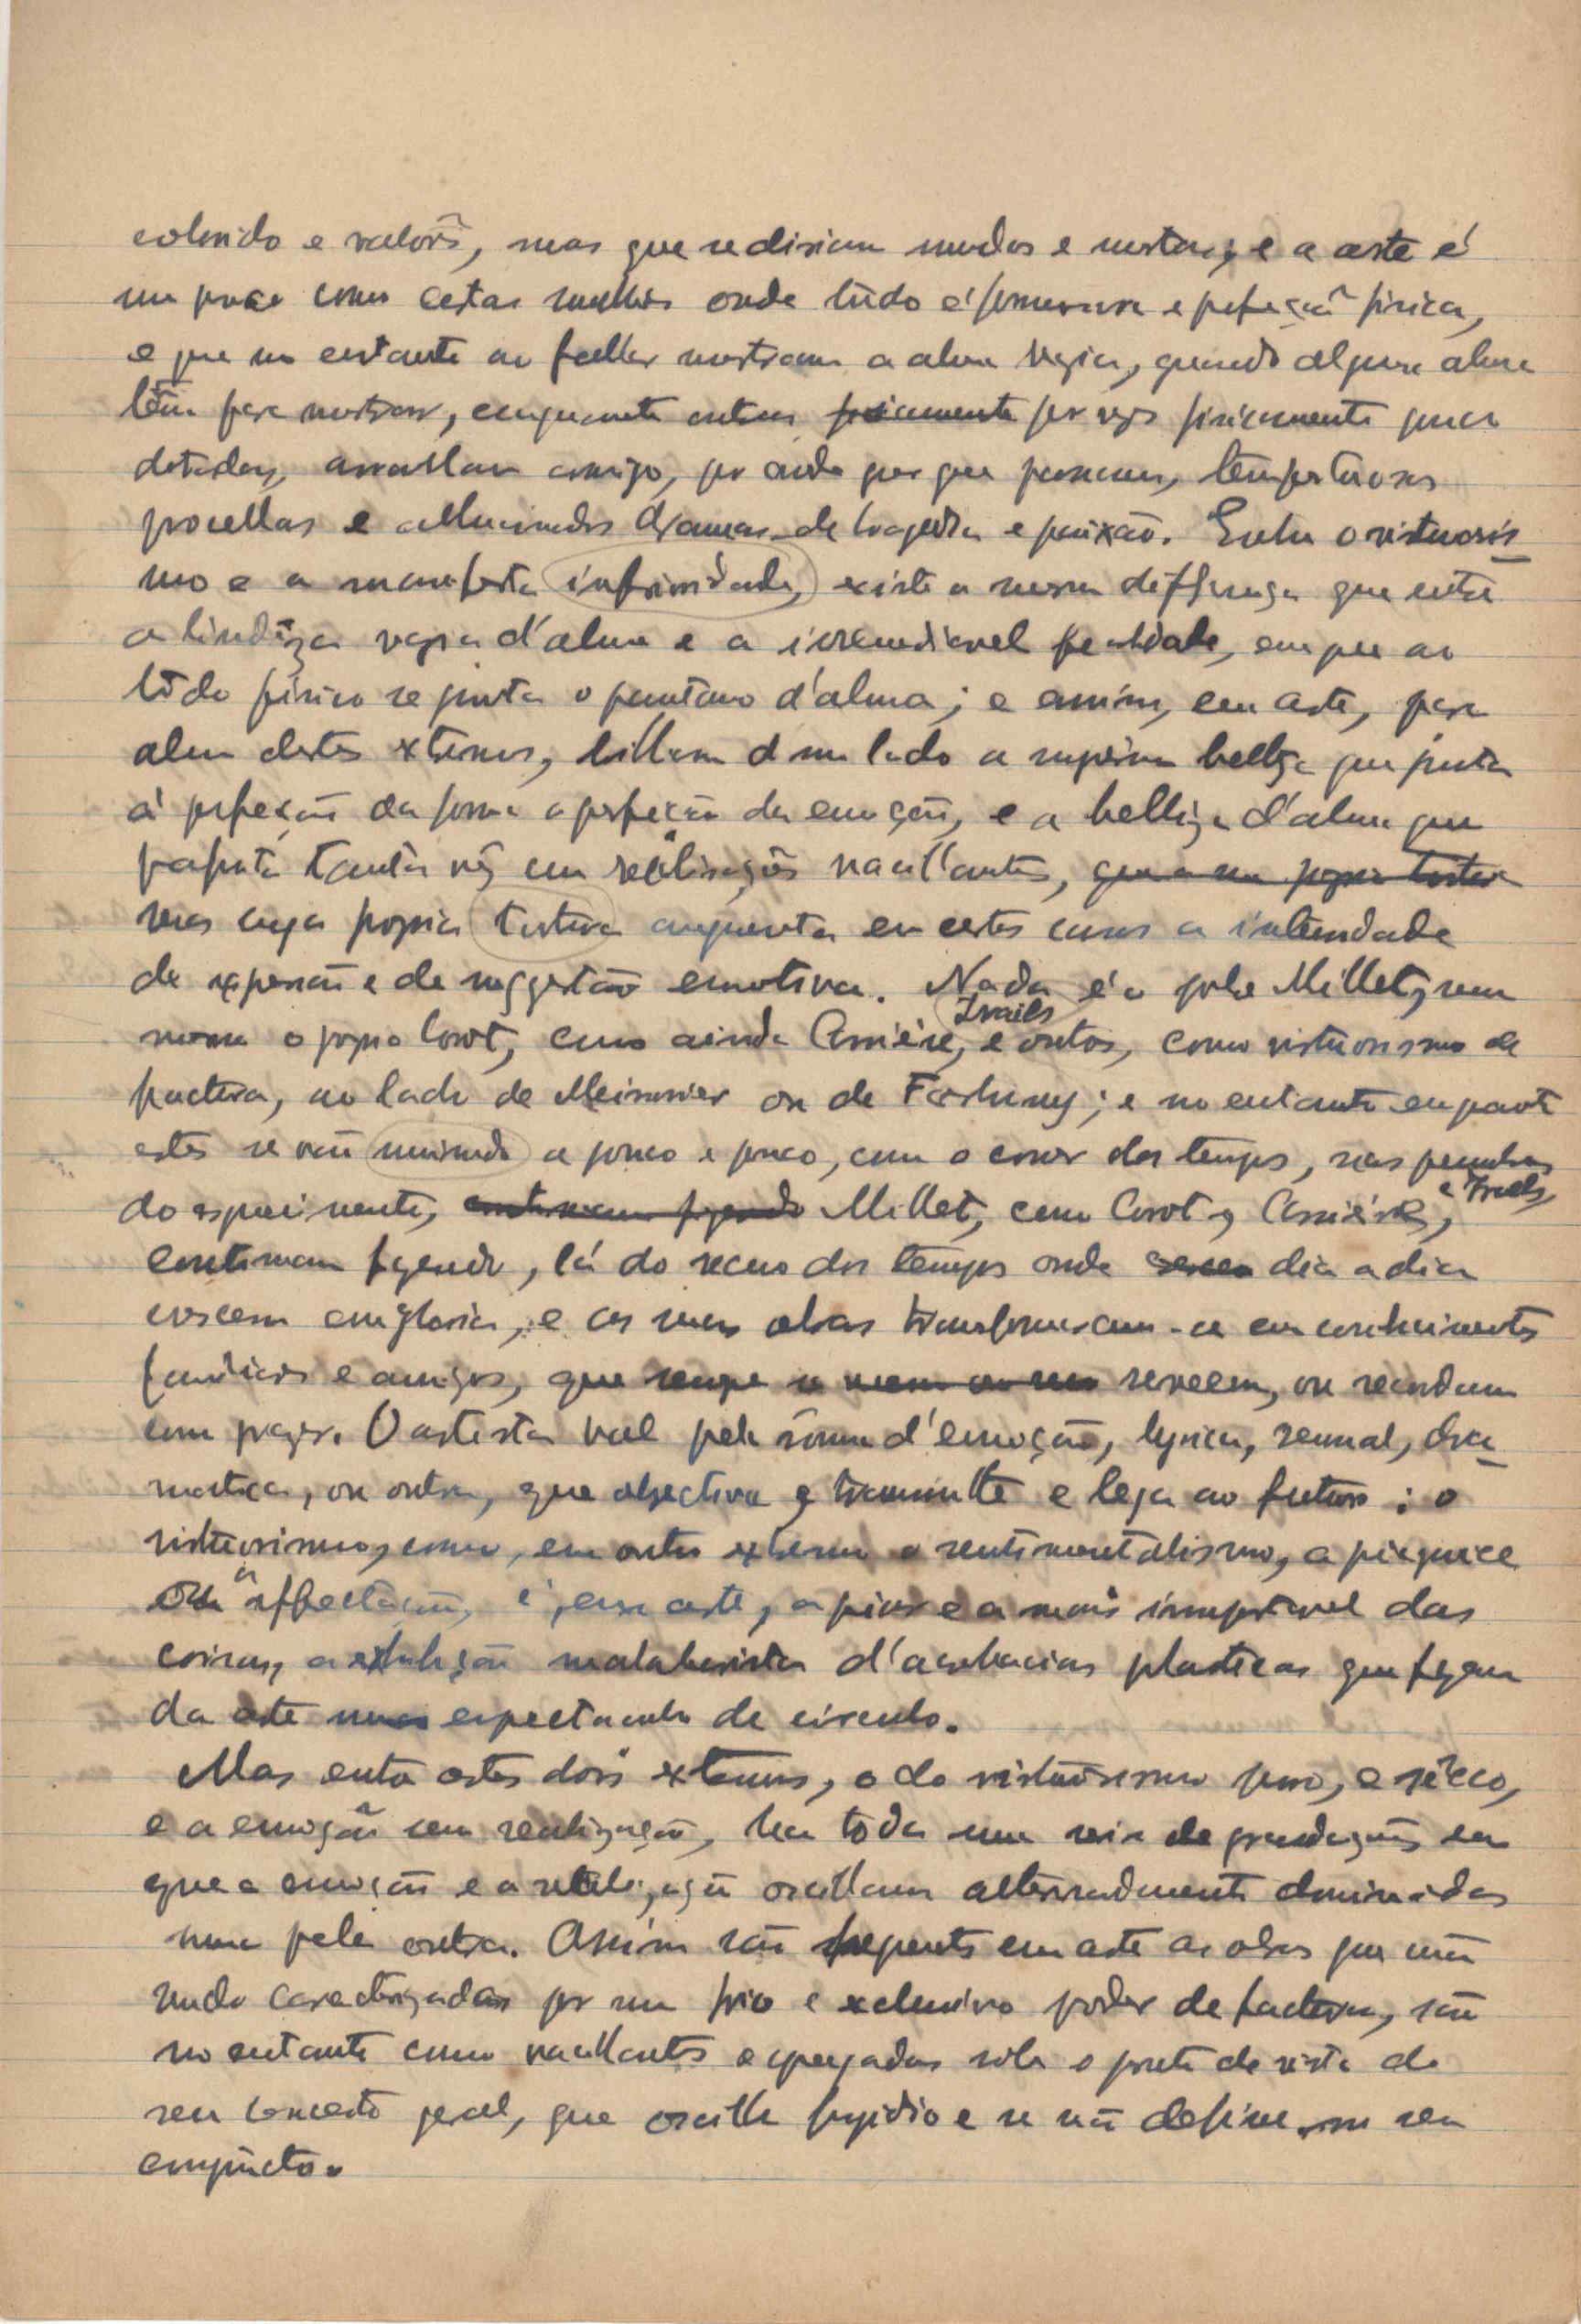 colorido e valôres, mas que se diriam mudos e mortos; e a arte é
um pouco como certas mulheres onde tudo é formosura e perfeição física,
e que no entanto ao fallar mostram a alma vazia, quando alguma alma
têm para mostrar, emquanto outras physicamente por vezes fisicamente pouco
dotadas, arrastam comsigo, por onde quer que passam, tempestuosas
procellas e allucinados dramas de tragedia e paixão. Entre o virtuosis-
mo e a manifesta inferioridade, existe a mesma differença que entre
a lindêza vazia d'alma e a irremediavel fealdade, em que ao
lôdo físico se junta o pantano d'alma; e assim, em arte, para
alem destes extremos, brilham d'um lado a suprema belleza que junta
á perfeição da forma a perfeição da emoção, e a belleza d'alma que
palpita tanta vez em realisações vacillantes, que a sua propria
mas cuja propria augmenta em certos casos a intensidade
de expressão e de suggestão emotiva. Nada é o pobre Millet, nem
mesmo o proprio Corot, como ainda Carrière, Israels e outros, como virtuosismo de
factura, ao lado de Meissonier ou de Fortuny; e no entanto emquanto
estes se vão sumindo a pouco e pouco, com o correr dos tempos, nas penumbras
do esquecimento, continuam fazendo Millet, como Corot, Carrière, e Israels,
continuam fazendo, lá do recuo dos tempos onde dia a dia
crescem em gloria, e as suas obras transformaram-se em conhecimentos
familiares e amigos, que sempre se revêem, ou recordam
com prazer. O artista vale pela sôma d'emoção, lyrica, sensual, dra-
matica, ou outra, que objectiva e transmitte e lega ao futuro: o
virtuosismo, como, em outro extremo o sentimentalismo, a pieguice
ou a affectação, é, em arte, a peior e a mais insuportavel das
coisas, a exhibição malabarista d'acrobacias plasticas que fazem
da arte espectaculo de circulo.
Mas entre estes dois extremos, o do virtuosismo puro, e sêcco,
e a emoção sem realização, ha toda uma serie de gradações em
que a emoção e a realização oscillam alternadamente dominadas
uma pela outra. Assim são frequentes em arte as obras que não
sendo caracterizadas por um frio e exclusivo poder de factura, são
no entanto como vacillantes e apagadas sob o ponto de vista do
seu concerto geral, que oscilla fugidio e se não define no seu
conjuncto.